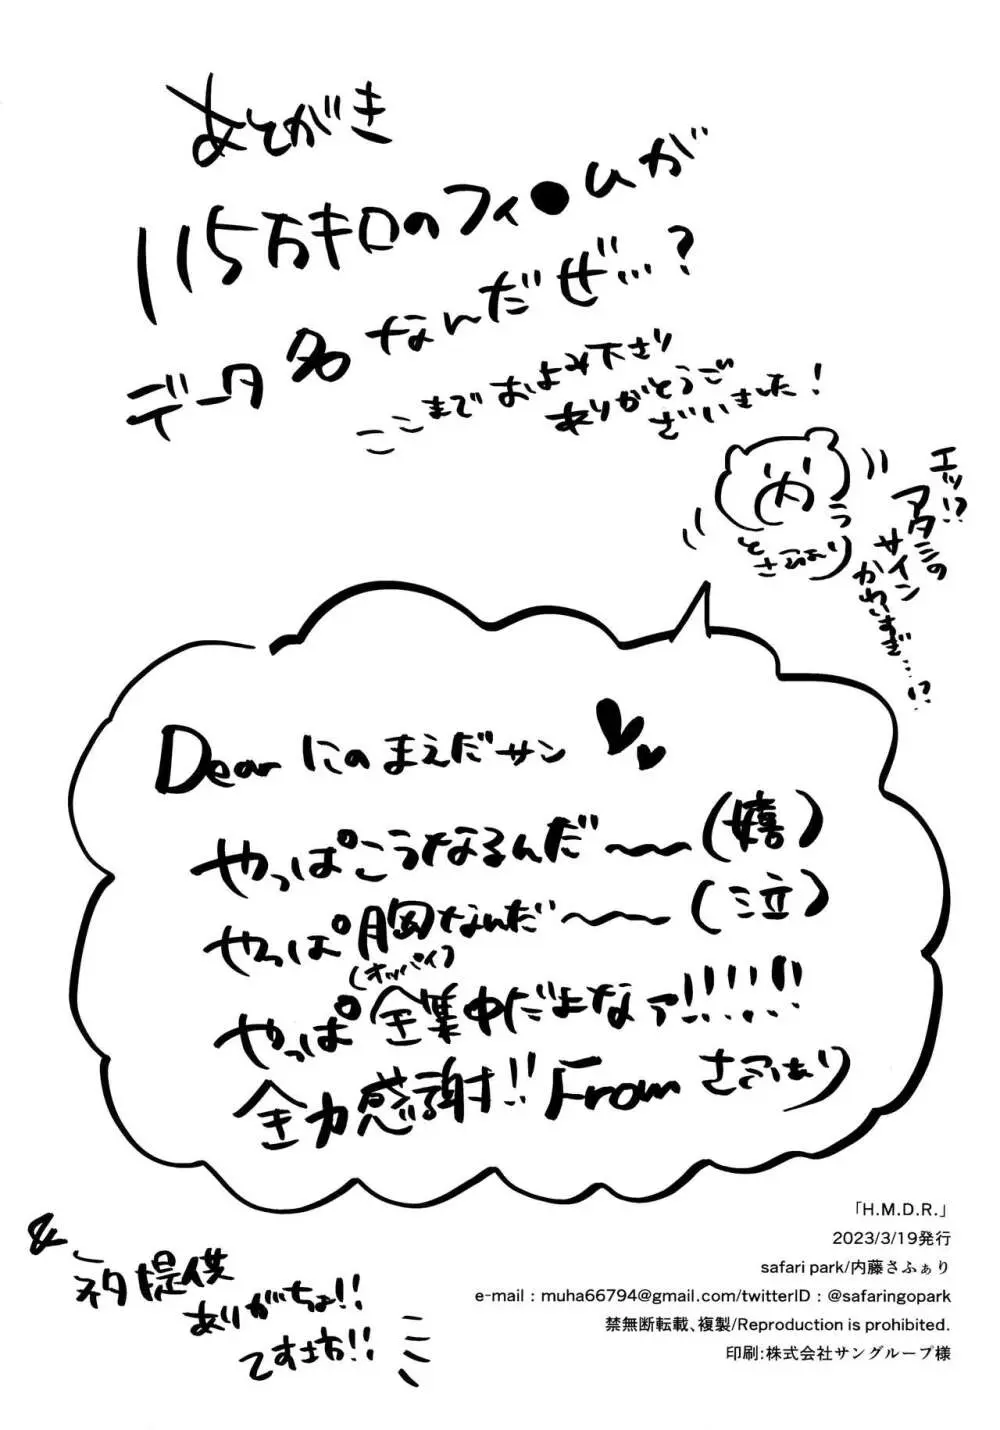 あとがき
115万キロのフィ●ムが
データ名なんだぜ…?
ここまでおよみ下さり
ありがとうご
ざいました!
エッ!?
アタシの
サイン
かわいすぎ…!?
さふぁり
Dear にのまえださん
やっぱこうなるんだ〜〜(嬉)
やっぱ胸なんだ〜〜(泣)
(オッパイ)
やっぱ全集中だよなァ!!!!!
全力感謝!! From さふぁり
&
ネタ提供
ありがちょ!!
てす坊!!
「H.M.D.R.」
2023/3/19発行
safari park/内藤さふぁり
e-mail : muha66794@gmail.com/twitterID : @safaringopark
禁無断転載、複製/Reproduction is prohibited.
印刷:株式会社サングループ様